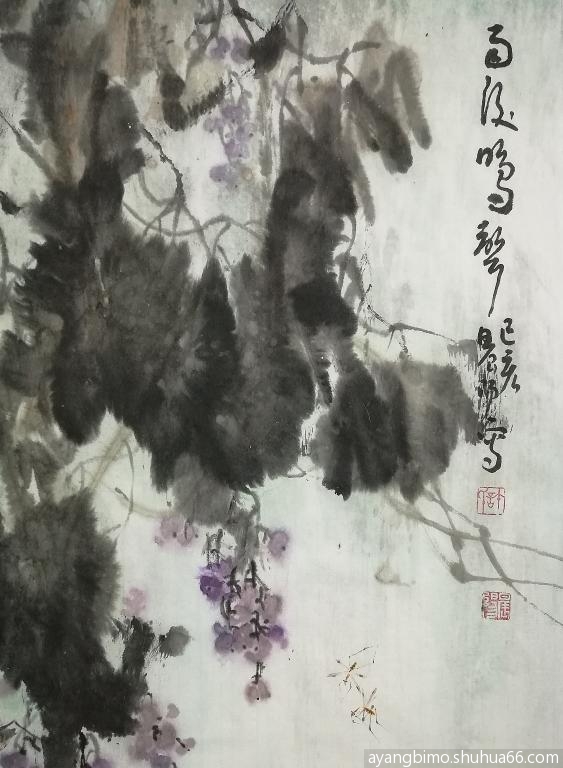 雨後鳴聲
己亥
寫
ayangbimo.shuhua66.com